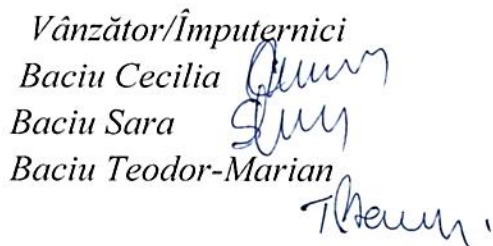 Vânzător/Împuternici
Baciu Cecilia
Baciu Sara
Baciu Teodor-Marian